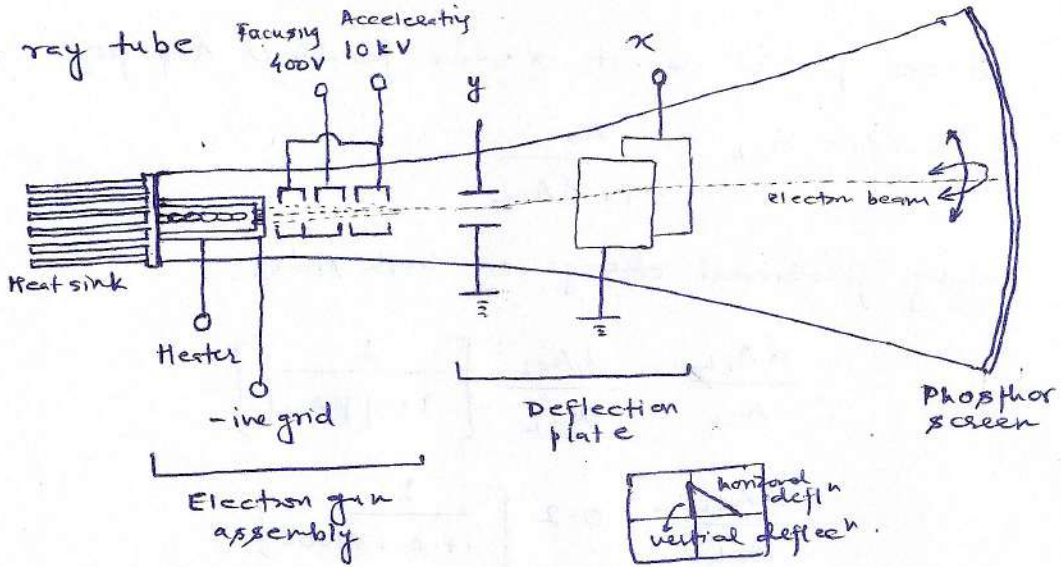 ray tube
Focusing
400V
Accelerating
10kV
y
x
electron beam
Heat sink
Heater
-ive grid
Deflection
plate
Phosphor
screen
Electron gun
assembly
horizonal
deflⁿ
vertial deflecⁿ.